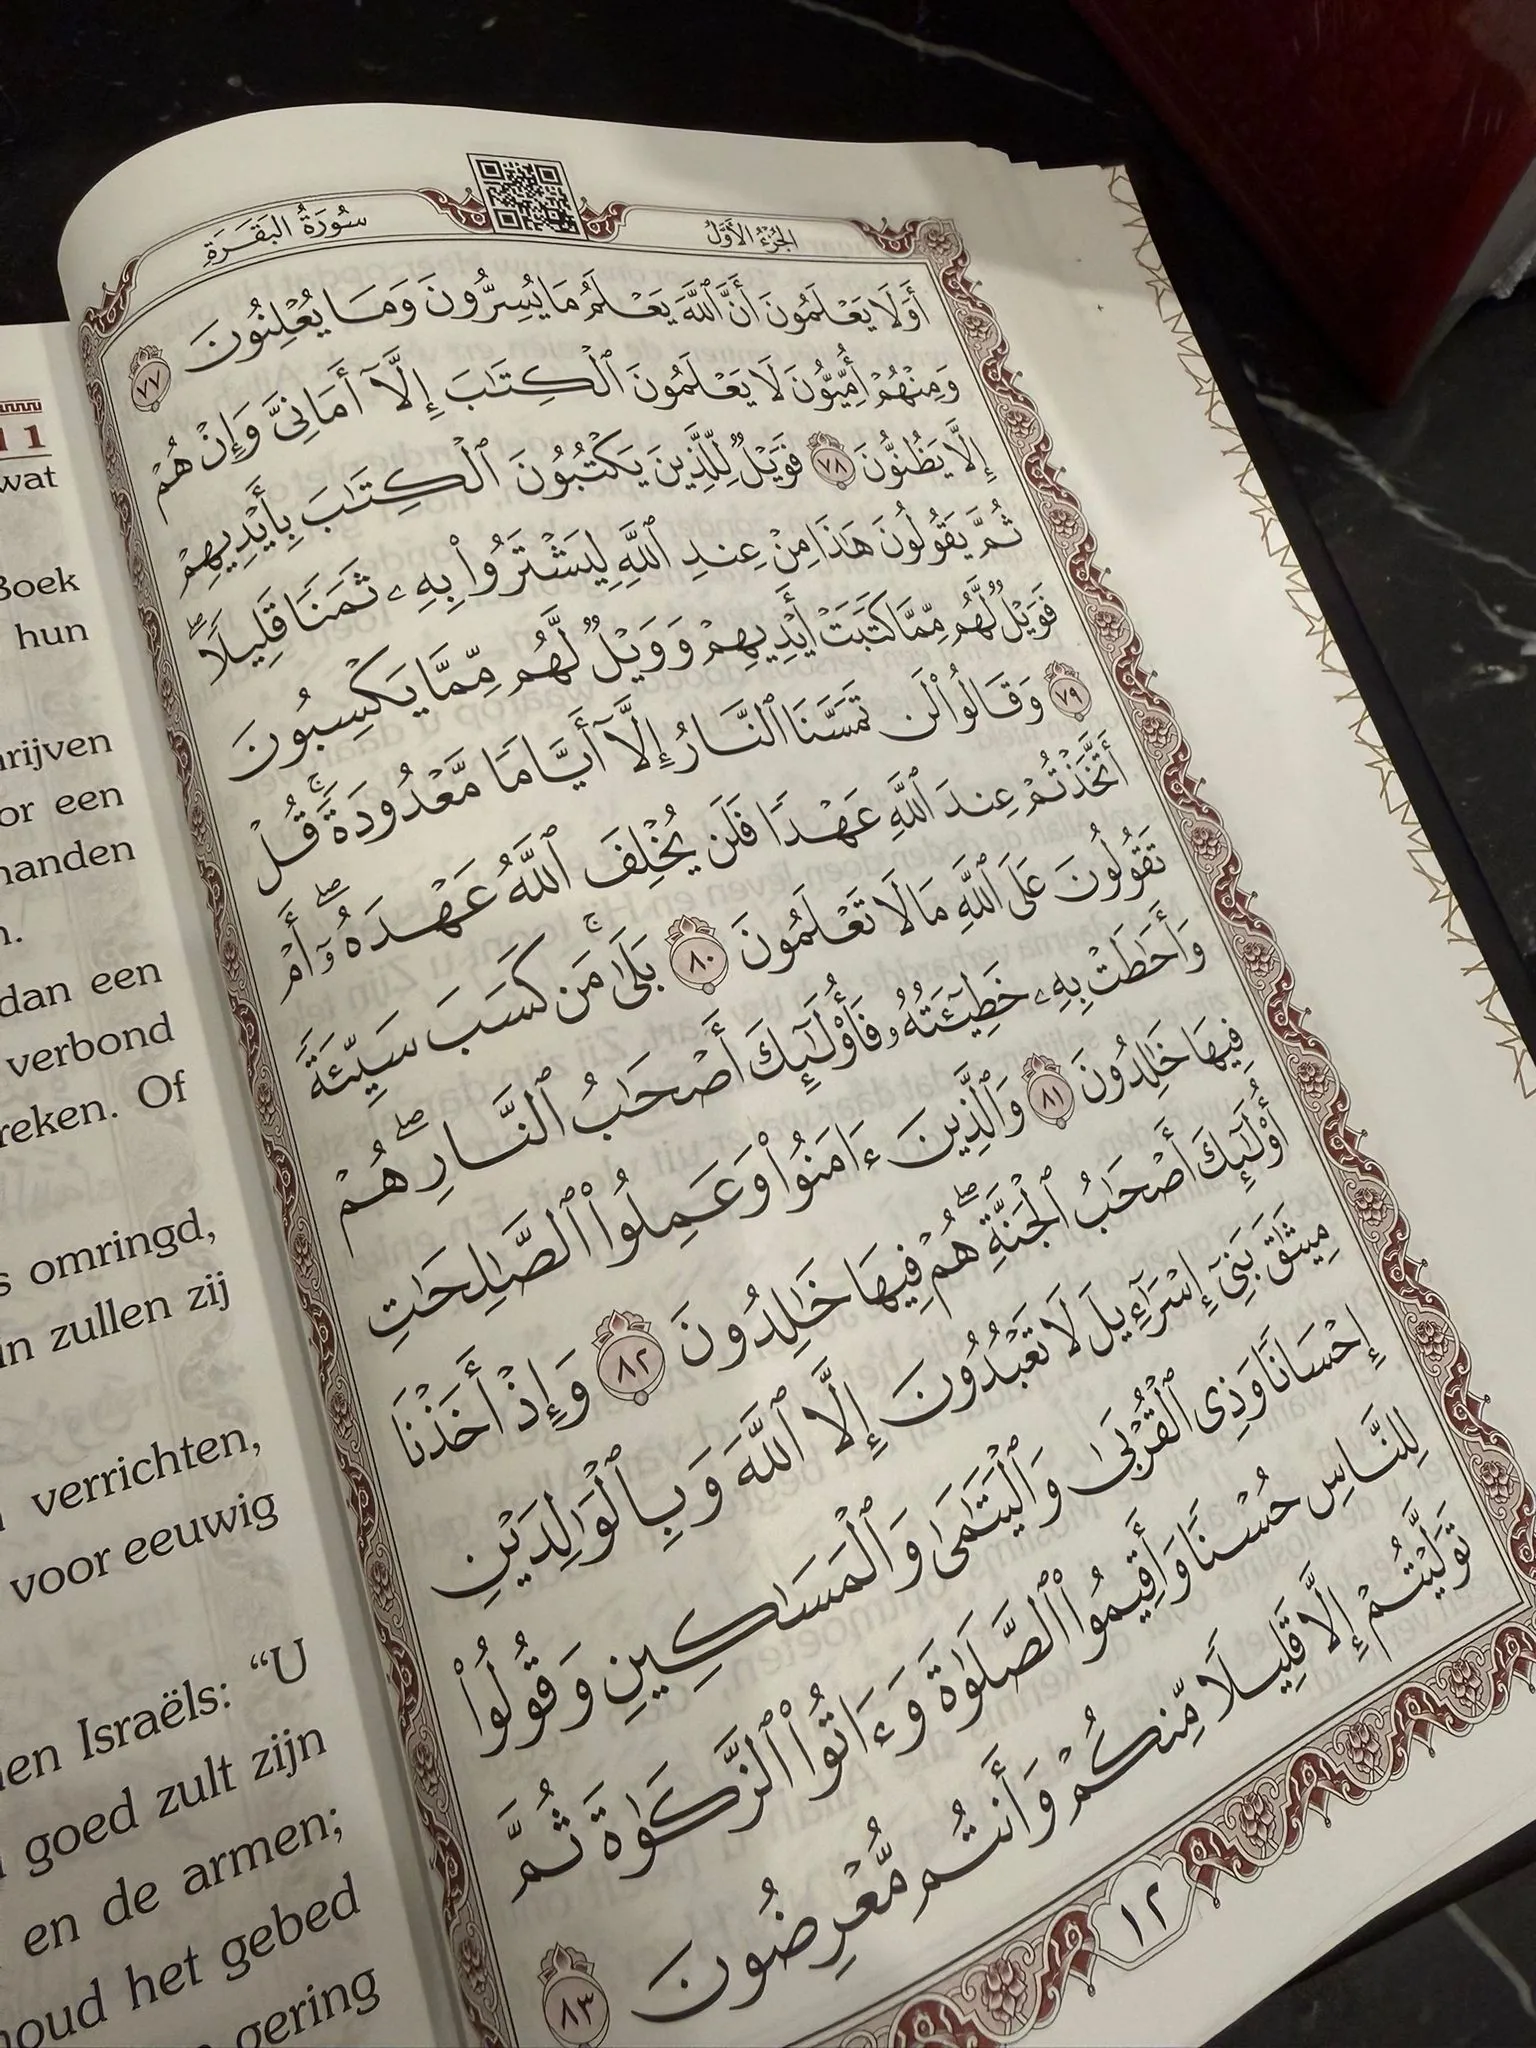 سُورَةُ البَقَرَةِ
الجُزْءُ الأَوَّلُ
أَوَلَا يَعْلَمُونَ أَنَّ ٱللَّهَ يَعْلَمُ مَا يُسِرُّونَ وَمَا يُعْلِنُونَ ٧٧
وَمِنْهُمْ أُمِّيُّونَ لَا يَعْلَمُونَ ٱلْكِتَٰبَ إِلَّآ أَمَانِىَّ وَإِنْ هُمْ
إِلَّا يَظُنُّونَ ٧٨ فَوَيْلٌ لِّلَّذِينَ يَكْتُبُونَ ٱلْكِتَٰبَ بِأَيْدِيهِمْ
ثُمَّ يَقُولُونَ هَٰذَا مِنْ عِندِ ٱللَّهِ لِيَشْتَرُوا۟ بِهِۦ ثَمَنًا قَلِيلًا ۖ
فَوَيْلٌ لَّهُم مِّمَّا كَتَبَتْ أَيْدِيهِمْ وَوَيْلٌ لَّهُم مِّمَّا يَكْسِبُونَ
٧٩ وَقَالُوا۟ لَن تَمَسَّنَا ٱلنَّارُ إِلَّآ أَيَّامًا مَّعْدُودَةً ۚ قُلْ
أَتَّخَذْتُمْ عِندَ ٱللَّهِ عَهْدًا فَلَن يُخْلِفَ ٱللَّهُ عَهْدَهُۥٓ ۖ أَمْ
تَقُولُونَ عَلَى ٱللَّهِ مَا لَا تَعْلَمُونَ ٨٠ بَلَىٰ ۚ مَن كَسَبَ سَيِّئَةً
وَأَحَٰطَتْ بِهِۦ خَطِيٓـَٔتُهُۥ فَأُو۟لَٰٓئِكَ أَصْحَٰبُ ٱلنَّارِ ۖ هُمْ
فِيهَا خَٰلِدُونَ ٨١ وَٱلَّذِينَ ءَامَنُوا۟ وَعَمِلُوا۟ ٱلصَّٰلِحَٰتِ
أُو۟لَٰٓئِكَ أَصْحَٰبُ ٱلْجَنَّةِ ۖ هُمْ فِيهَا خَٰلِدُونَ ٨٢ وَإِذْ أَخَذْنَا
مِيثَٰقَ بَنِىٓ إِسْرَٰٓءِيلَ لَا تَعْبُدُونَ إِلَّا ٱللَّهَ وَبِٱلْوَٰلِدَيْنِ
إِحْسَانًا وَذِى ٱلْقُرْبَىٰ وَٱلْيَتَٰمَىٰ وَٱلْمَسَٰكِينِ وَقُولُوا۟
لِلنَّاسِ حُسْنًا وَأَقِيمُوا۟ ٱلصَّلَوٰةَ وَءَاتُوا۟ ٱلزَّكَوٰةَ ثُمَّ
تَوَلَّيْتُمْ إِلَّا قَلِيلًا مِّنكُمْ وَأَنتُم مُّعْرِضُونَ ٨٣
١٢
wat
Boek
hun
een
dan een
verbond
Of
omringd,
zullen zij
verrichten,
voor eeuwig
Israëls: “U
goed zult zijn
en de armen;
het gebed
gering